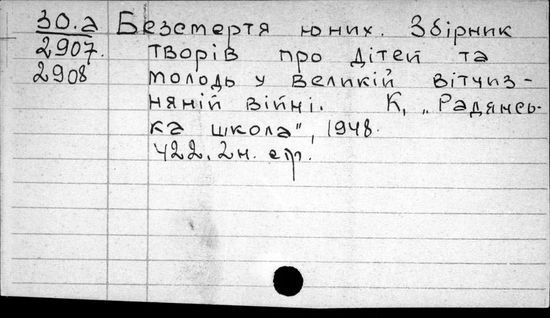 30.а Безсмертя юних. Збірник
2907. творів про дітей та
2908 молодь у великій вітчиз-
няній війні. К, „Радянсь-
ка школа", 1948.
422, 2 н. стр.